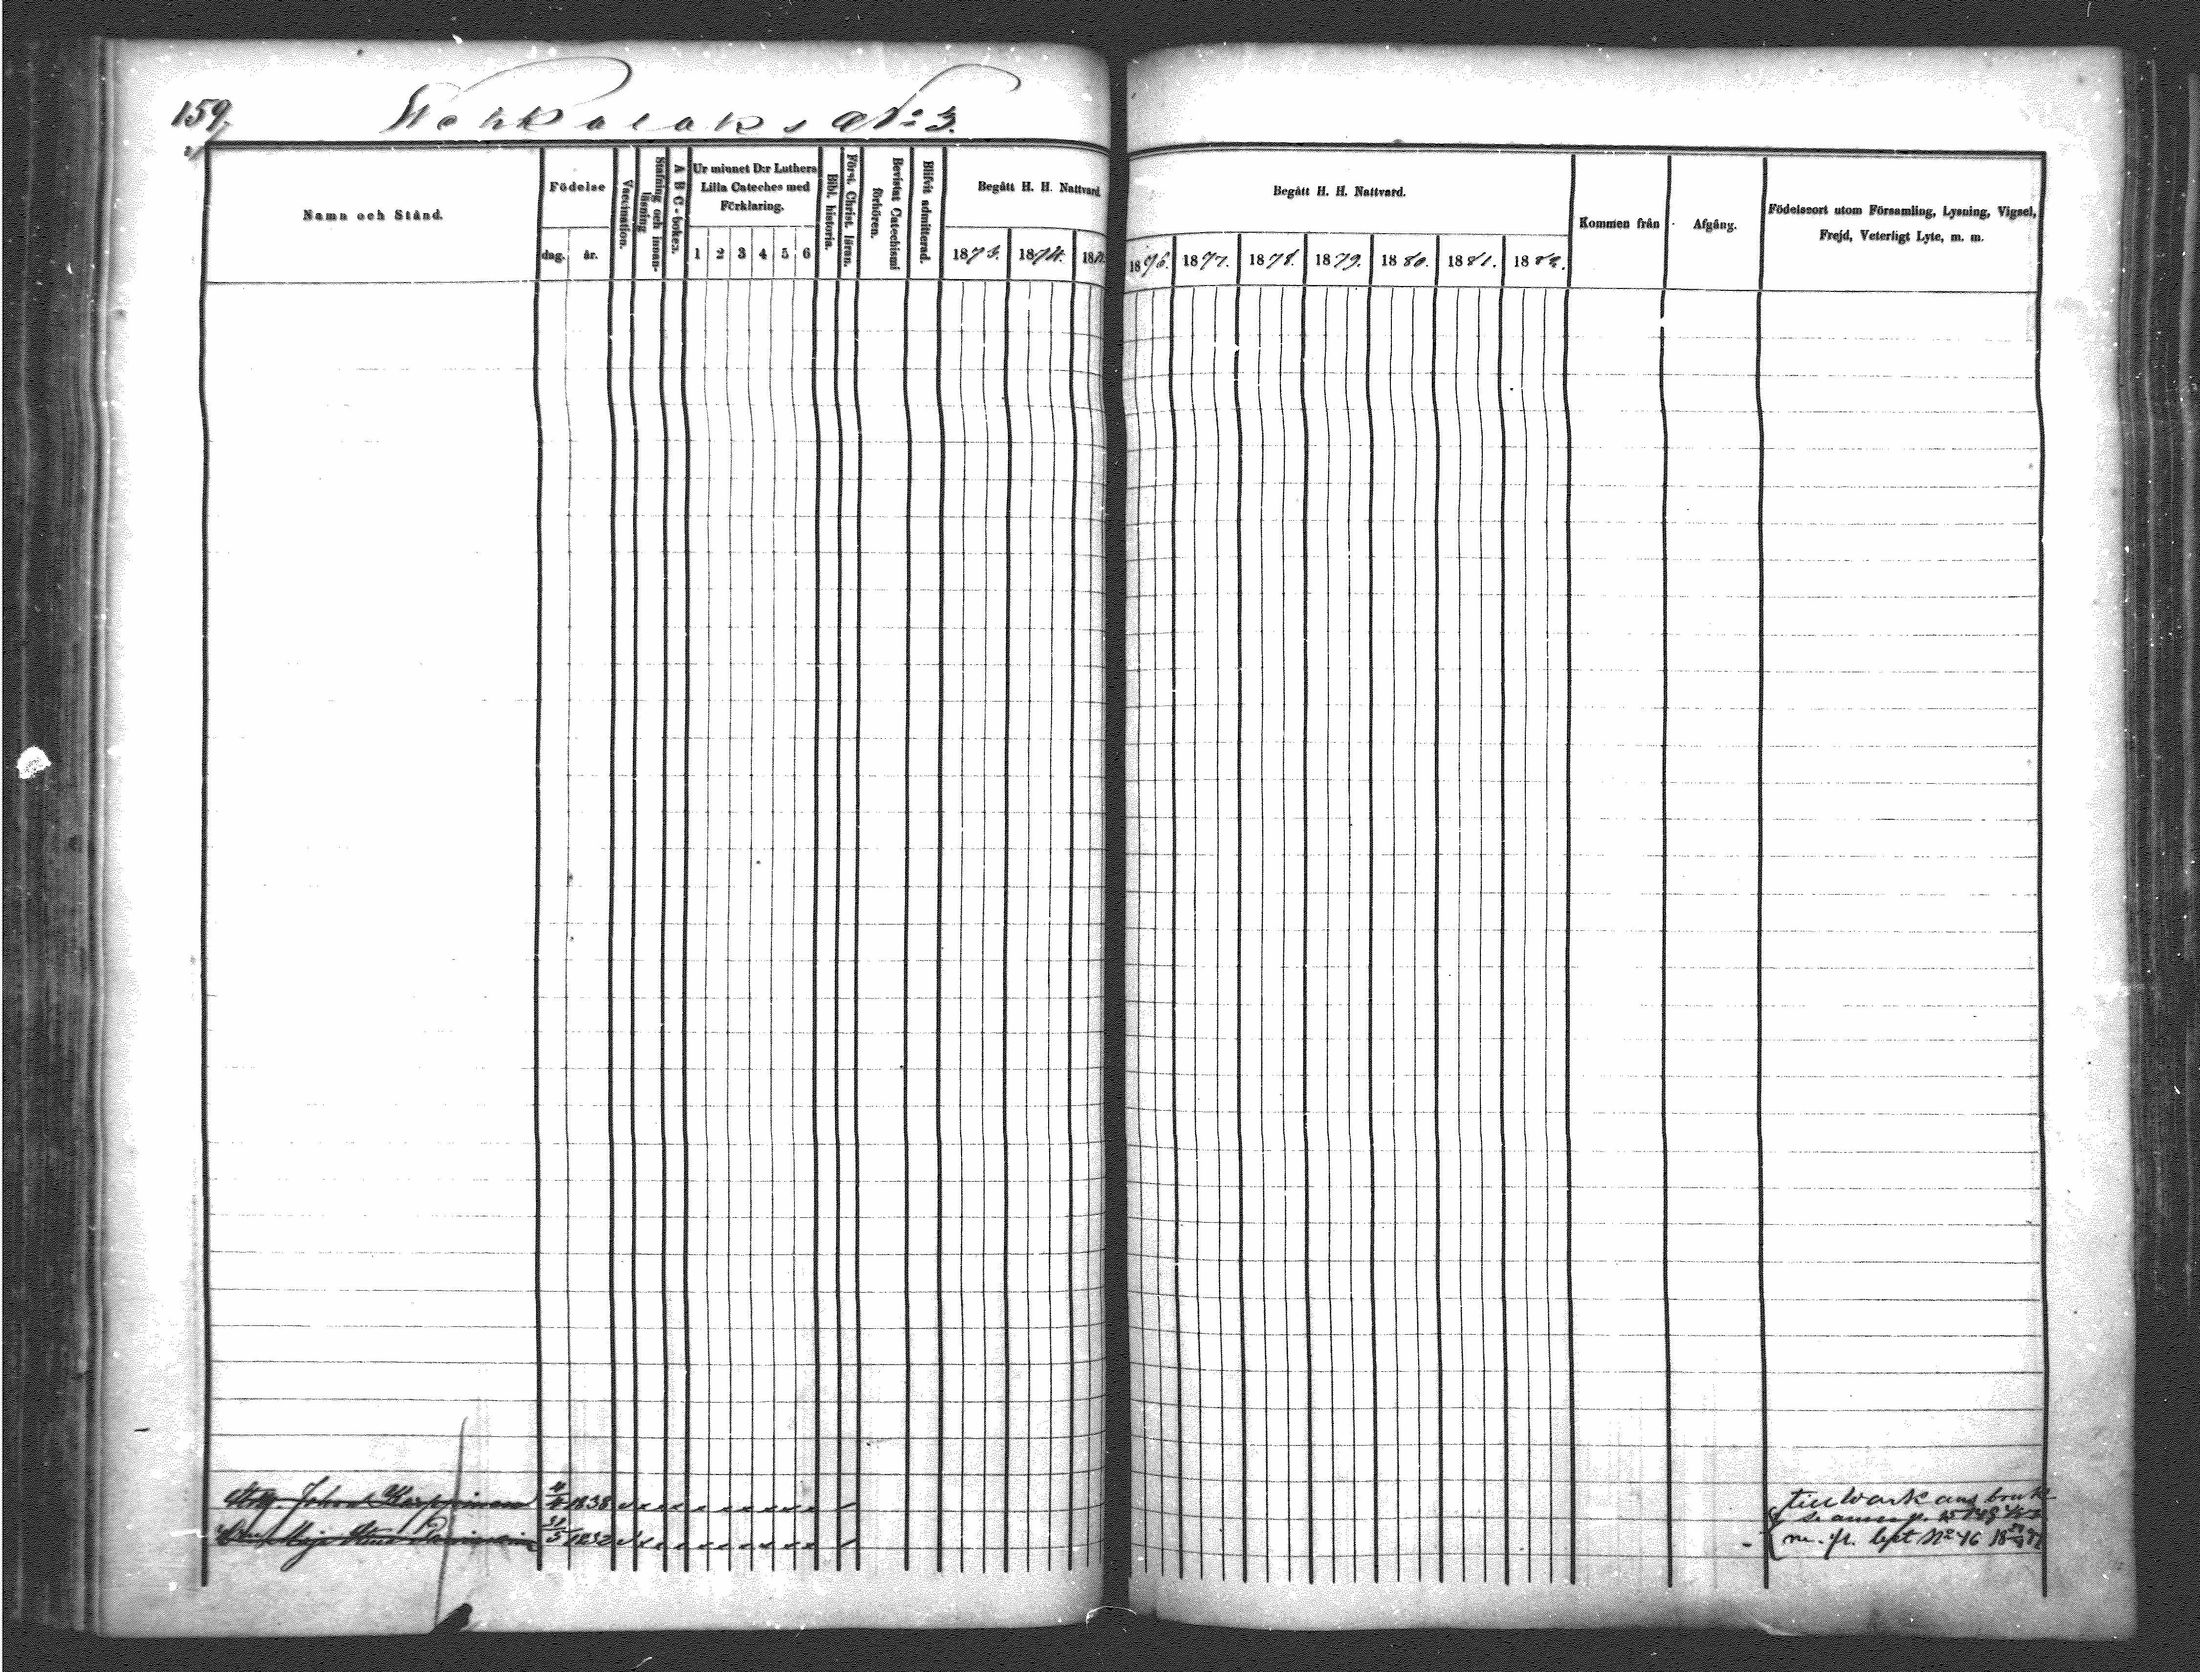 159.
N:o 3.
Namn och Stånd.
Födelse
dag. år.
Vaccination.
Stafning och innanläsning
A B C-boken.
Ur minnet D:r Luthers
Lilla Cateches med
Förklaring.
1 2 3 4 5 6
Bibl. historia.
Först. Christ. läran.
Bevistat Catechismi
förhören.
Blifvit admitterad.
Begått H. H. Nattvard.
1873. 1874. 187
Begått H. H. Nattvard.
1876. 1877. 1878. 1879. 1880. 1881. 1882.
Kommen från
Afgång.
Födelseort utom Församling, Lysning, Vigsel,
Frejd, Veterligt Lyte, m. m.
Johan Karppinen 1838
Maja Stina 1832
till
m. fl. N:o 46